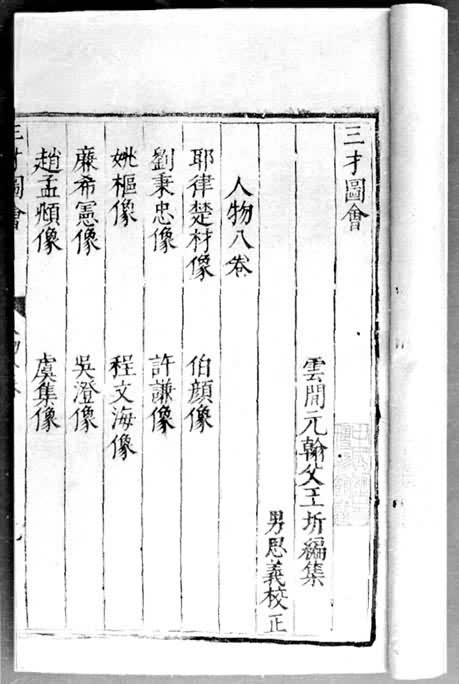 三才圖會
雲間元翰父王圻編集
男思義校正
人物八卷
耶律楚材像 伯顏像
劉秉忠像 許謙像
姚樞像 程文海像
廉希憲像 吳澄像
趙孟頫像 虞集像
三才圖會